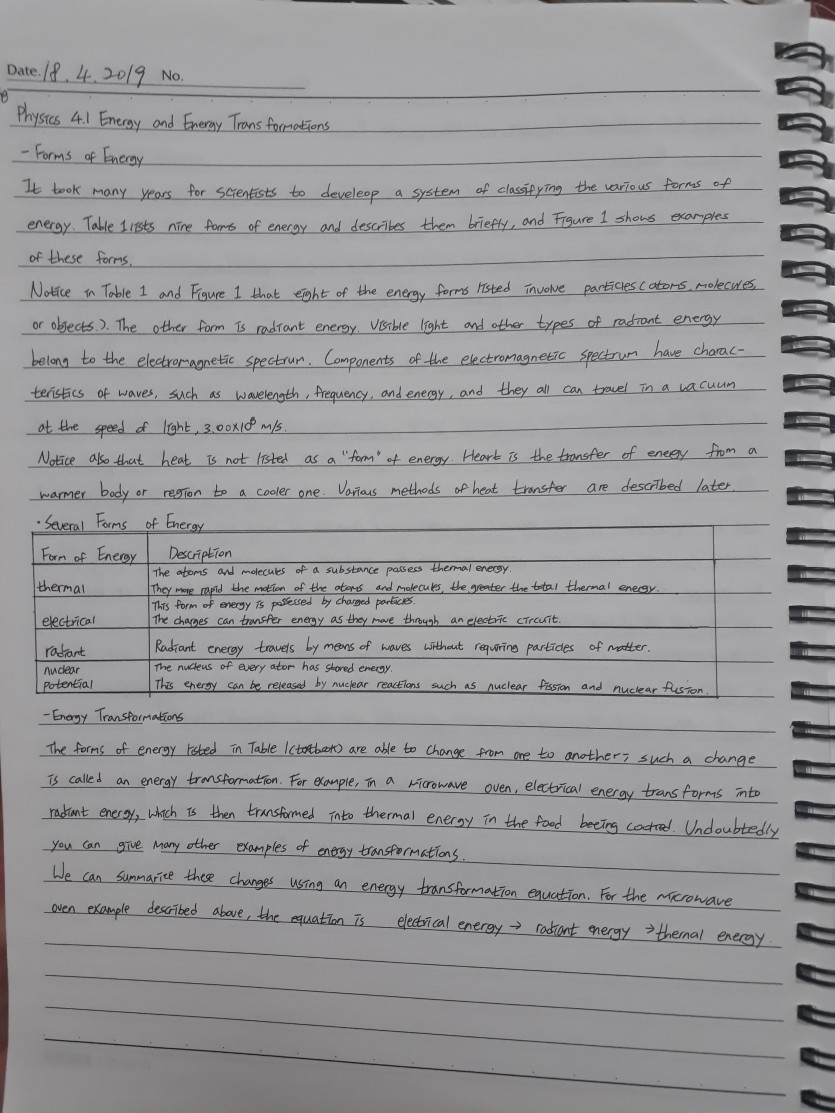 Date. 18. 4. 2019 No.
Physics 4.1 Energy and Energy Transformations
- Forms of Energy
It took many years for scientists to develeop a system of classifying the various forms of
energy. Table 1 lists nine forms of energy and describes them briefly, and Figure 1 shows examples
of these forms.
Notice in Table 1 and Figure 1 that eight of the energy forms listed involve particles (atoms, molecules,
or objects.). The other form is radiant energy. Visible light and other types of radiant energy
belong to the electromagnetic spectrum. Components of the electromagnetic spectrum have charac-
teristics of waves, such as wavelength, frequency, and energy, and they all can travel in a vacuum
at the speed of light, 3.00×10⁸ m/s.
Notice also that heat is not listed as a "form" of energy. Heart is the transfer of energy from a
warmer body or region to a cooler one. Various methods of heat transfer are described later.
· Several Forms of Energy
Form of Energy Description
The atoms and molecules of a substance possess thermal energy.
thermal They more rapid the motion of the atoms and molecules, the greater the total thermal energy.
This form of energy is possessed by charged particles.
electrical The charges can transfer energy as they move through an electric circuit.
radiant Radiant energy travels by means of waves without requiring particles of matter.
nuclear The nucleus of every atom has stored energy.
potential This energy can be released by nuclear reactions such as nuclear fission and nuclear fusion.
- Energy Transformations
The forms of energy listed in Table 1 are able to change from one to another; such a change
is called an energy transformation. For example, in a microwave oven, electrical energy transforms into
radiant energy, which is then transformed into thermal energy in the food beeing cooked. Undoubtedly
you can give many other examples of energy transformations.
We can summarize these changes using an energy transformation equation. For the microwave
oven example described above, the equation is electrical energy → radiant energy → thermal energy.